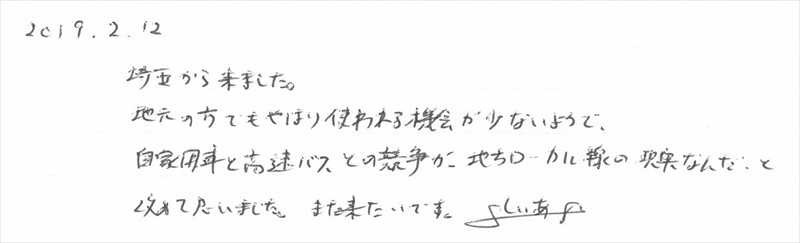 2019.2.12
埼玉から来ました。
地元の方でもやはり使われる機会が少ないようで、
自家用車と高速バスとの競争が地方ローカル線の現実なんだと
改めて思いました。また来たいです。